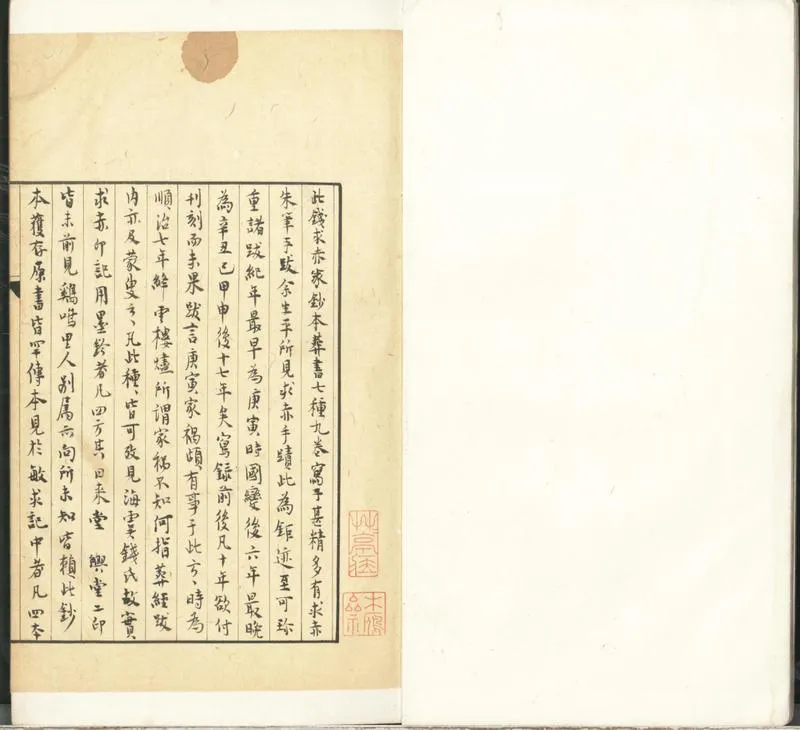 此錢求赤家鈔本葬書七種九卷寫手甚精多有求赤
朱筆手跋余生平所見求赤手蹟此為鉅迹至可珍
重諸跋紀年最早為庚寅時國變後六年最晚
為辛丑已甲申後十七年矣寫錄前後凡十年欲付
刊刻而未果跋言庚寅家禍頗有事于此云〻時為
順治七年絳雲樓燼所謂家禍不知何指葬經跋
內亦及蒙叟云〻凡此種〻皆可攷見海虞錢氏故實
求赤印記用墨鈐者凡四方其曰來堂 興堂二印
皆未前見鷄鳴里人別屬亦向所未知皆賴此鈔
本獲存原書皆罕傳本見於敏求記中者凡四本